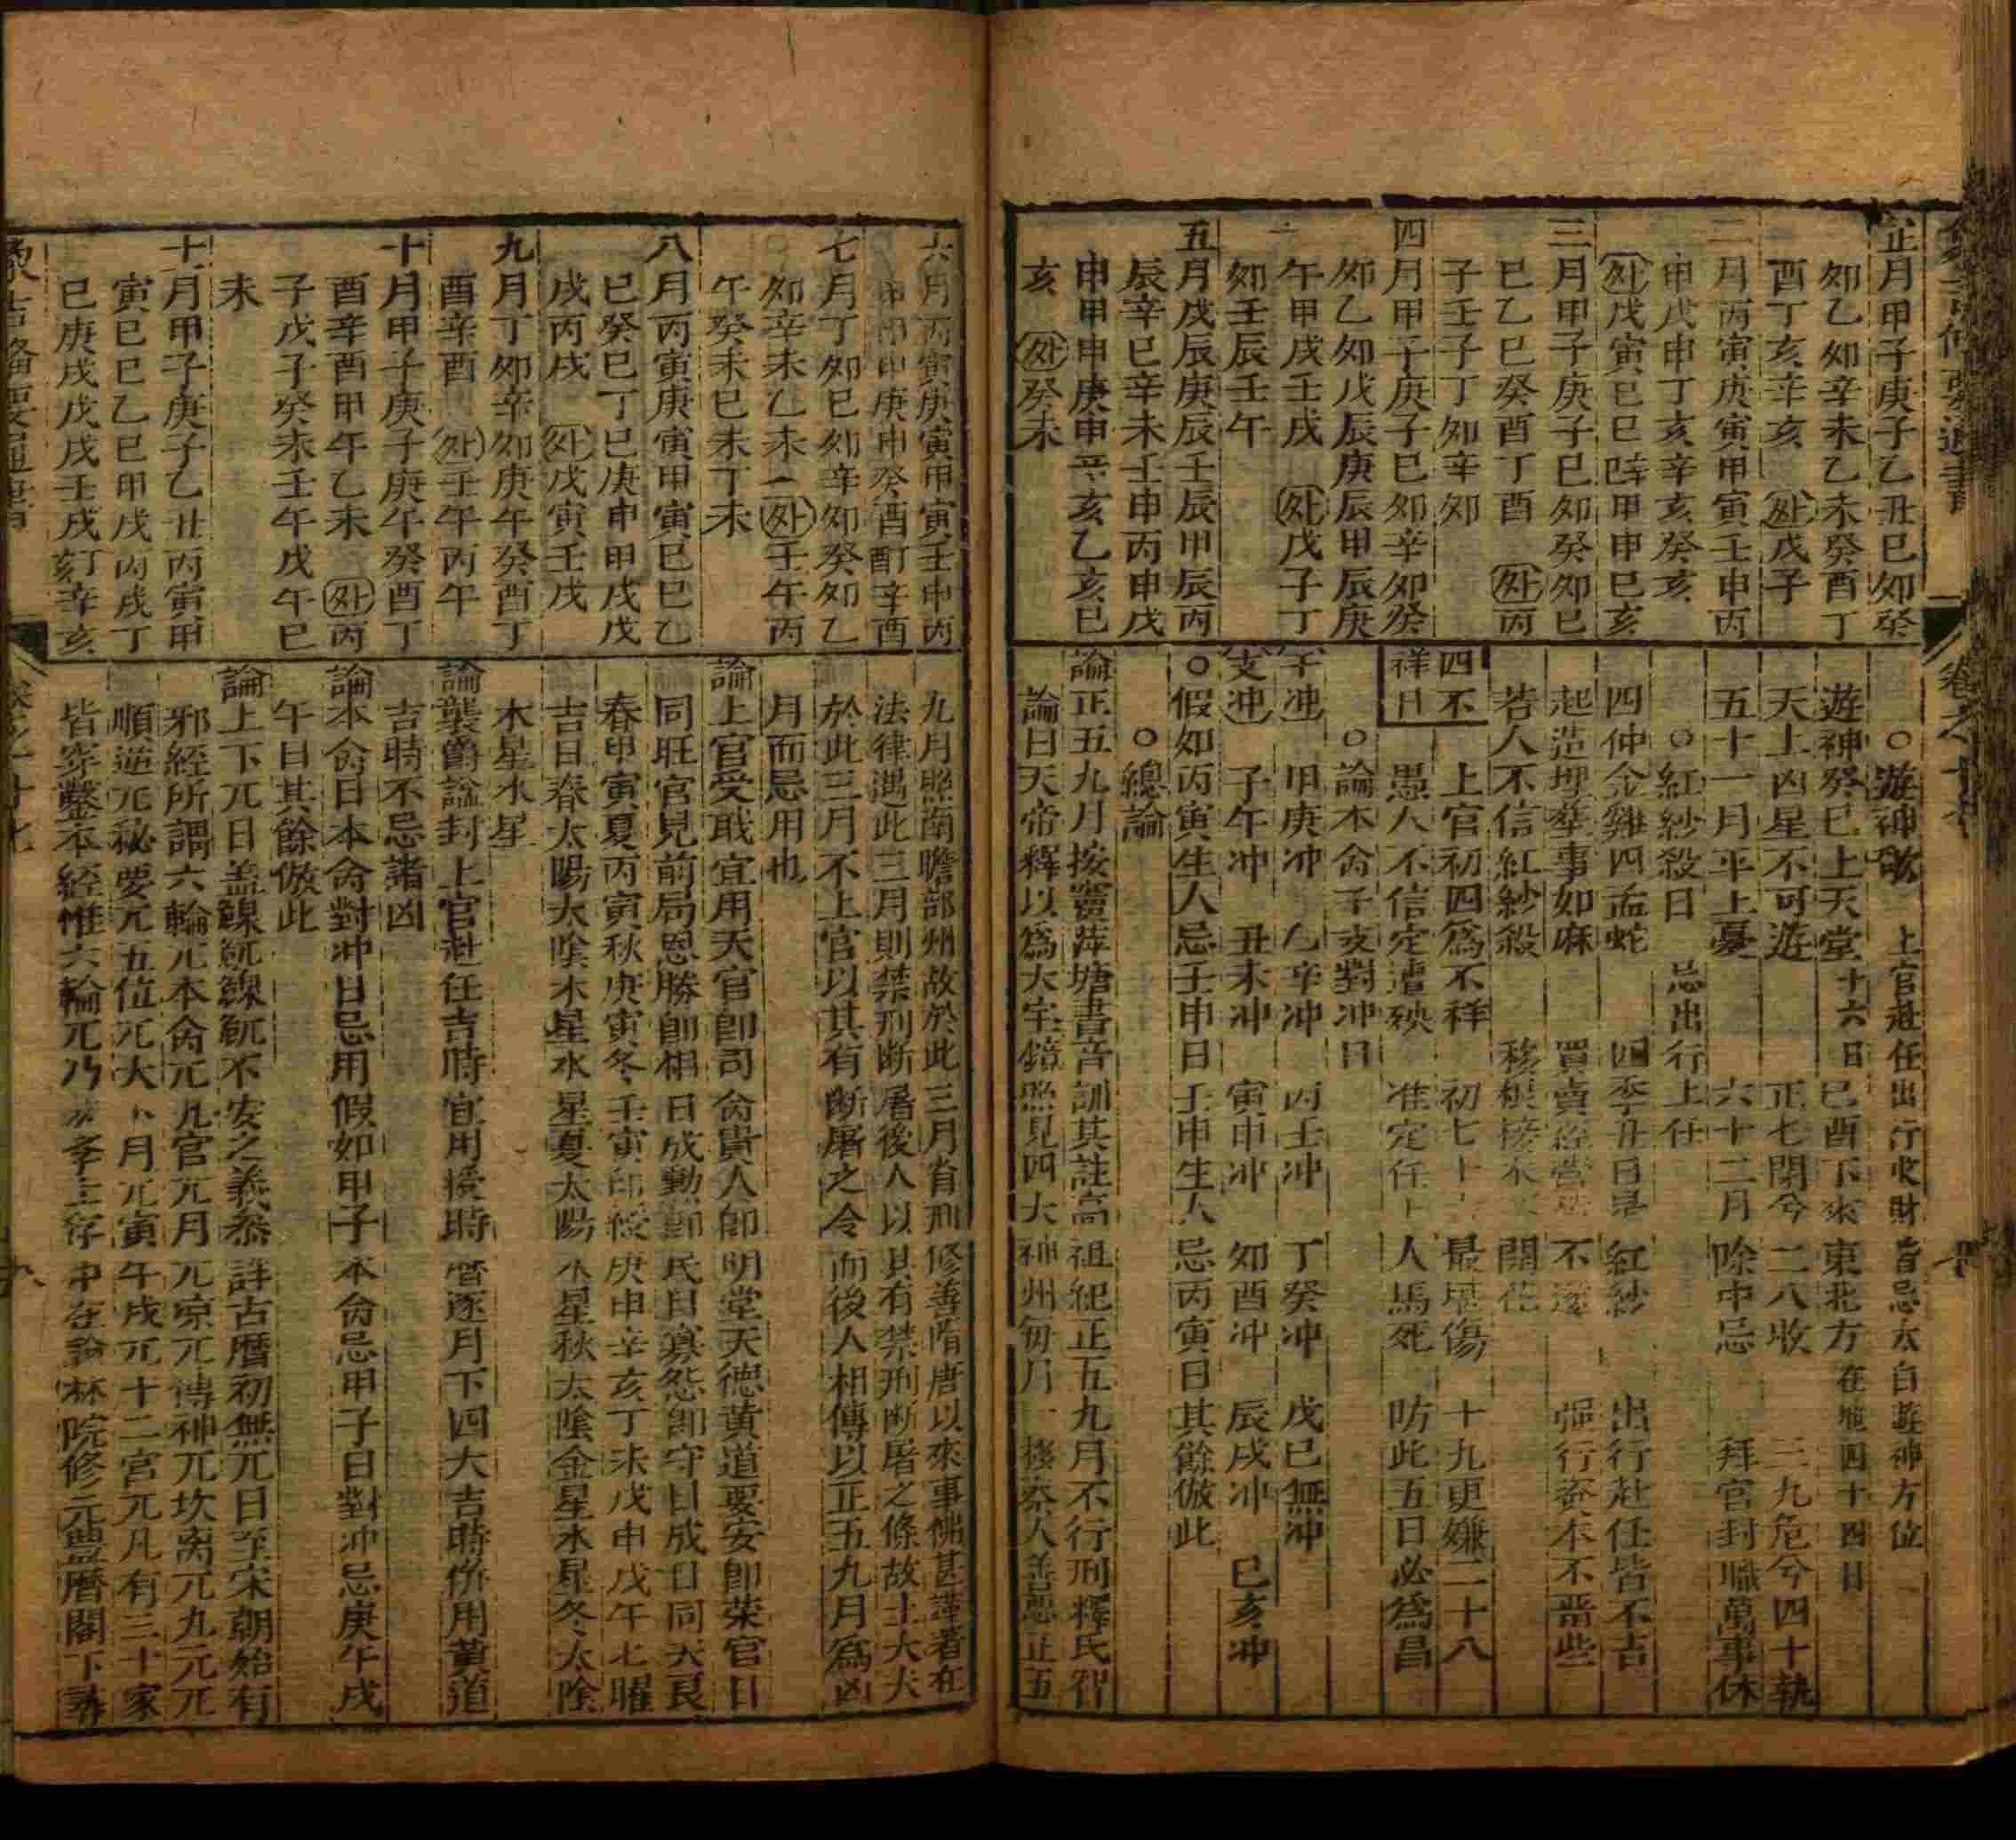 正月甲子庚子乙丑巳夘癸
夘乙夘辛未乙未癸酉丁
酉丁亥辛亥 外戊子
二月丙寅庚寅甲寅壬申丙
申戊申丁亥辛亥癸亥
外戊寅巳巳甲申巳亥
三月甲子庚子巳夘癸夘巳
巳乙巳癸酉丁酉 外丙
子壬子丁夘辛夘
四月甲子庚子巳夘辛夘癸
夘乙夘戊辰庚辰甲辰庚
午甲戌壬戌 外戊子丁
夘壬辰壬午
五月戊辰庚辰壬辰甲辰丙
辰辛巳辛未壬申丙申戊
申甲申庚申辛亥乙亥巳
亥 外癸未
○遊神歌 上官赴任出行收財皆忌太白遊神方位
遊神癸巳上天堂 十六日 巳酉下來東北方 在地四十四日
天上凶星不可遊 正七閉兮二八收 三九危兮四十執
五十一月平上憂 六十二月除中忌 拜官封職萬事休
○紅紗殺日 忌出行上任
四仲金雞四孟蛇 四季丑日是紅紗 出行赴任皆不吉
起造埋葬事如麻 買賣經營 不 强行 本不 些
若人不信紅紗殺 移根接木 開花
四不祥日 上官初四爲不祥 初七十 最堪傷 十九更嫌二十八
愚人不信定遭殃 准定任上人馬死 防此五日必爲昌
○論本命干支對冲日
干冲 甲庚冲 乙辛冲 丙壬冲 丁癸冲 戊巳無冲
支冲 子午冲 丑未冲 寅申冲 夘酉冲 辰戌冲 巳亥冲
○假如丙寅生人忌壬申日壬申生人忌丙寅日其餘倣此
○總論
論正五九月按竇苹塘書音訓其註高祖紀正五九月不行刑釋氏智
論曰天帝釋以爲大宝鏡照見四大神州每月一 察人善惡正五
六月丙寅庚寅甲寅壬申丙
申甲申庚申癸酉 辛酉
七月丁夘巳夘辛夘癸夘乙
夘辛未乙未 外壬午丙
午癸未巳未丁未
八月丙寅庚寅甲寅巳巳乙
巳癸巳丁巳庚申甲戌戊
戌丙戌 外戊寅壬戌
九月丁夘辛夘庚午癸酉丁
酉辛酉 外壬午丙午
十月甲子庚子庚午癸酉丁
酉辛酉甲午乙未 外丙
子戊子癸未壬午戊午巳
未
十一月甲子庚子乙丑丙寅甲
寅巳巳乙巳甲戌丙戌丁
巳庚戌戊戌壬戌 辛亥
九月照南瞻部州故於此三月省刑修善隋唐以來事佛甚謹著在
法律遇此三月則禁刑断屠後人以其有禁刑断屠之條故士大夫
於此三月不上官以其有断屠之令而後人相傳以正五九月爲凶
月而忌用也
論上官受職宜用天官即司命貴人即明堂天德黄道要安即荣官日
同旺官見前局恩勝即相日成勲即民日寡怨即守日成日同天艮
春甲寅夏丙寅秋庚寅冬壬寅印綬庚申辛亥丁未戊申戊午七曜
吉日春太陽大陰木星水星夏太陽水星秋太陰金星水星冬太陰
木星水星
論襲爵謚封上官赴任吉時宜用授時曆逐月下四大吉時併用黄道
吉時不忌諸凶
論本命日本命對冲日忌用假如甲子本命忌甲子日對冲忌庚午戌
午日其餘倣此
論上下兀日盖鰁䲛鰁䲛不安之義叅詳古曆初無兀日至宋朝始有
邪經所謂六輪兀本命兀九官兀月兀宗兀傳神兀坎离兀九元兀
順逆兀秘要兀五位兀大小月兀寅午戌兀十二宮兀凡有三十家
皆穿鑿本經惟六輪兀乃 李主存中在翰林院修元豊曆閣下